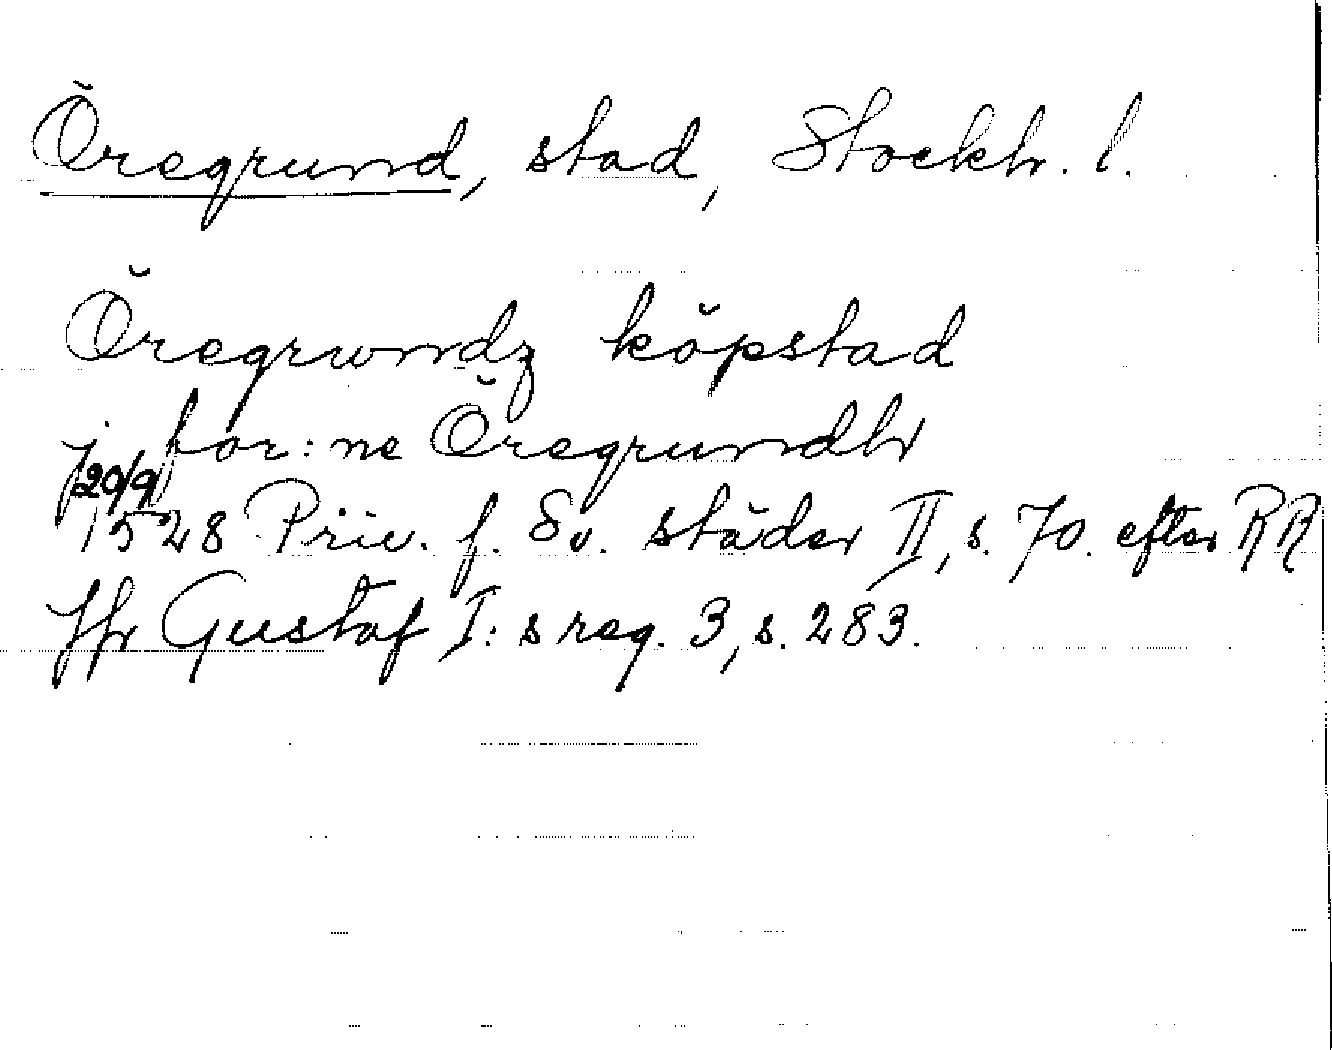 Öregrund, stad, Stockh. l.
Öregrwndz köpstad
j for:ne Öregrundh
20/9
1528 Priv. f. Sv. städer II, s. 70. efter RR
Jfr Gustaf I:s reg. 3, s. 283.